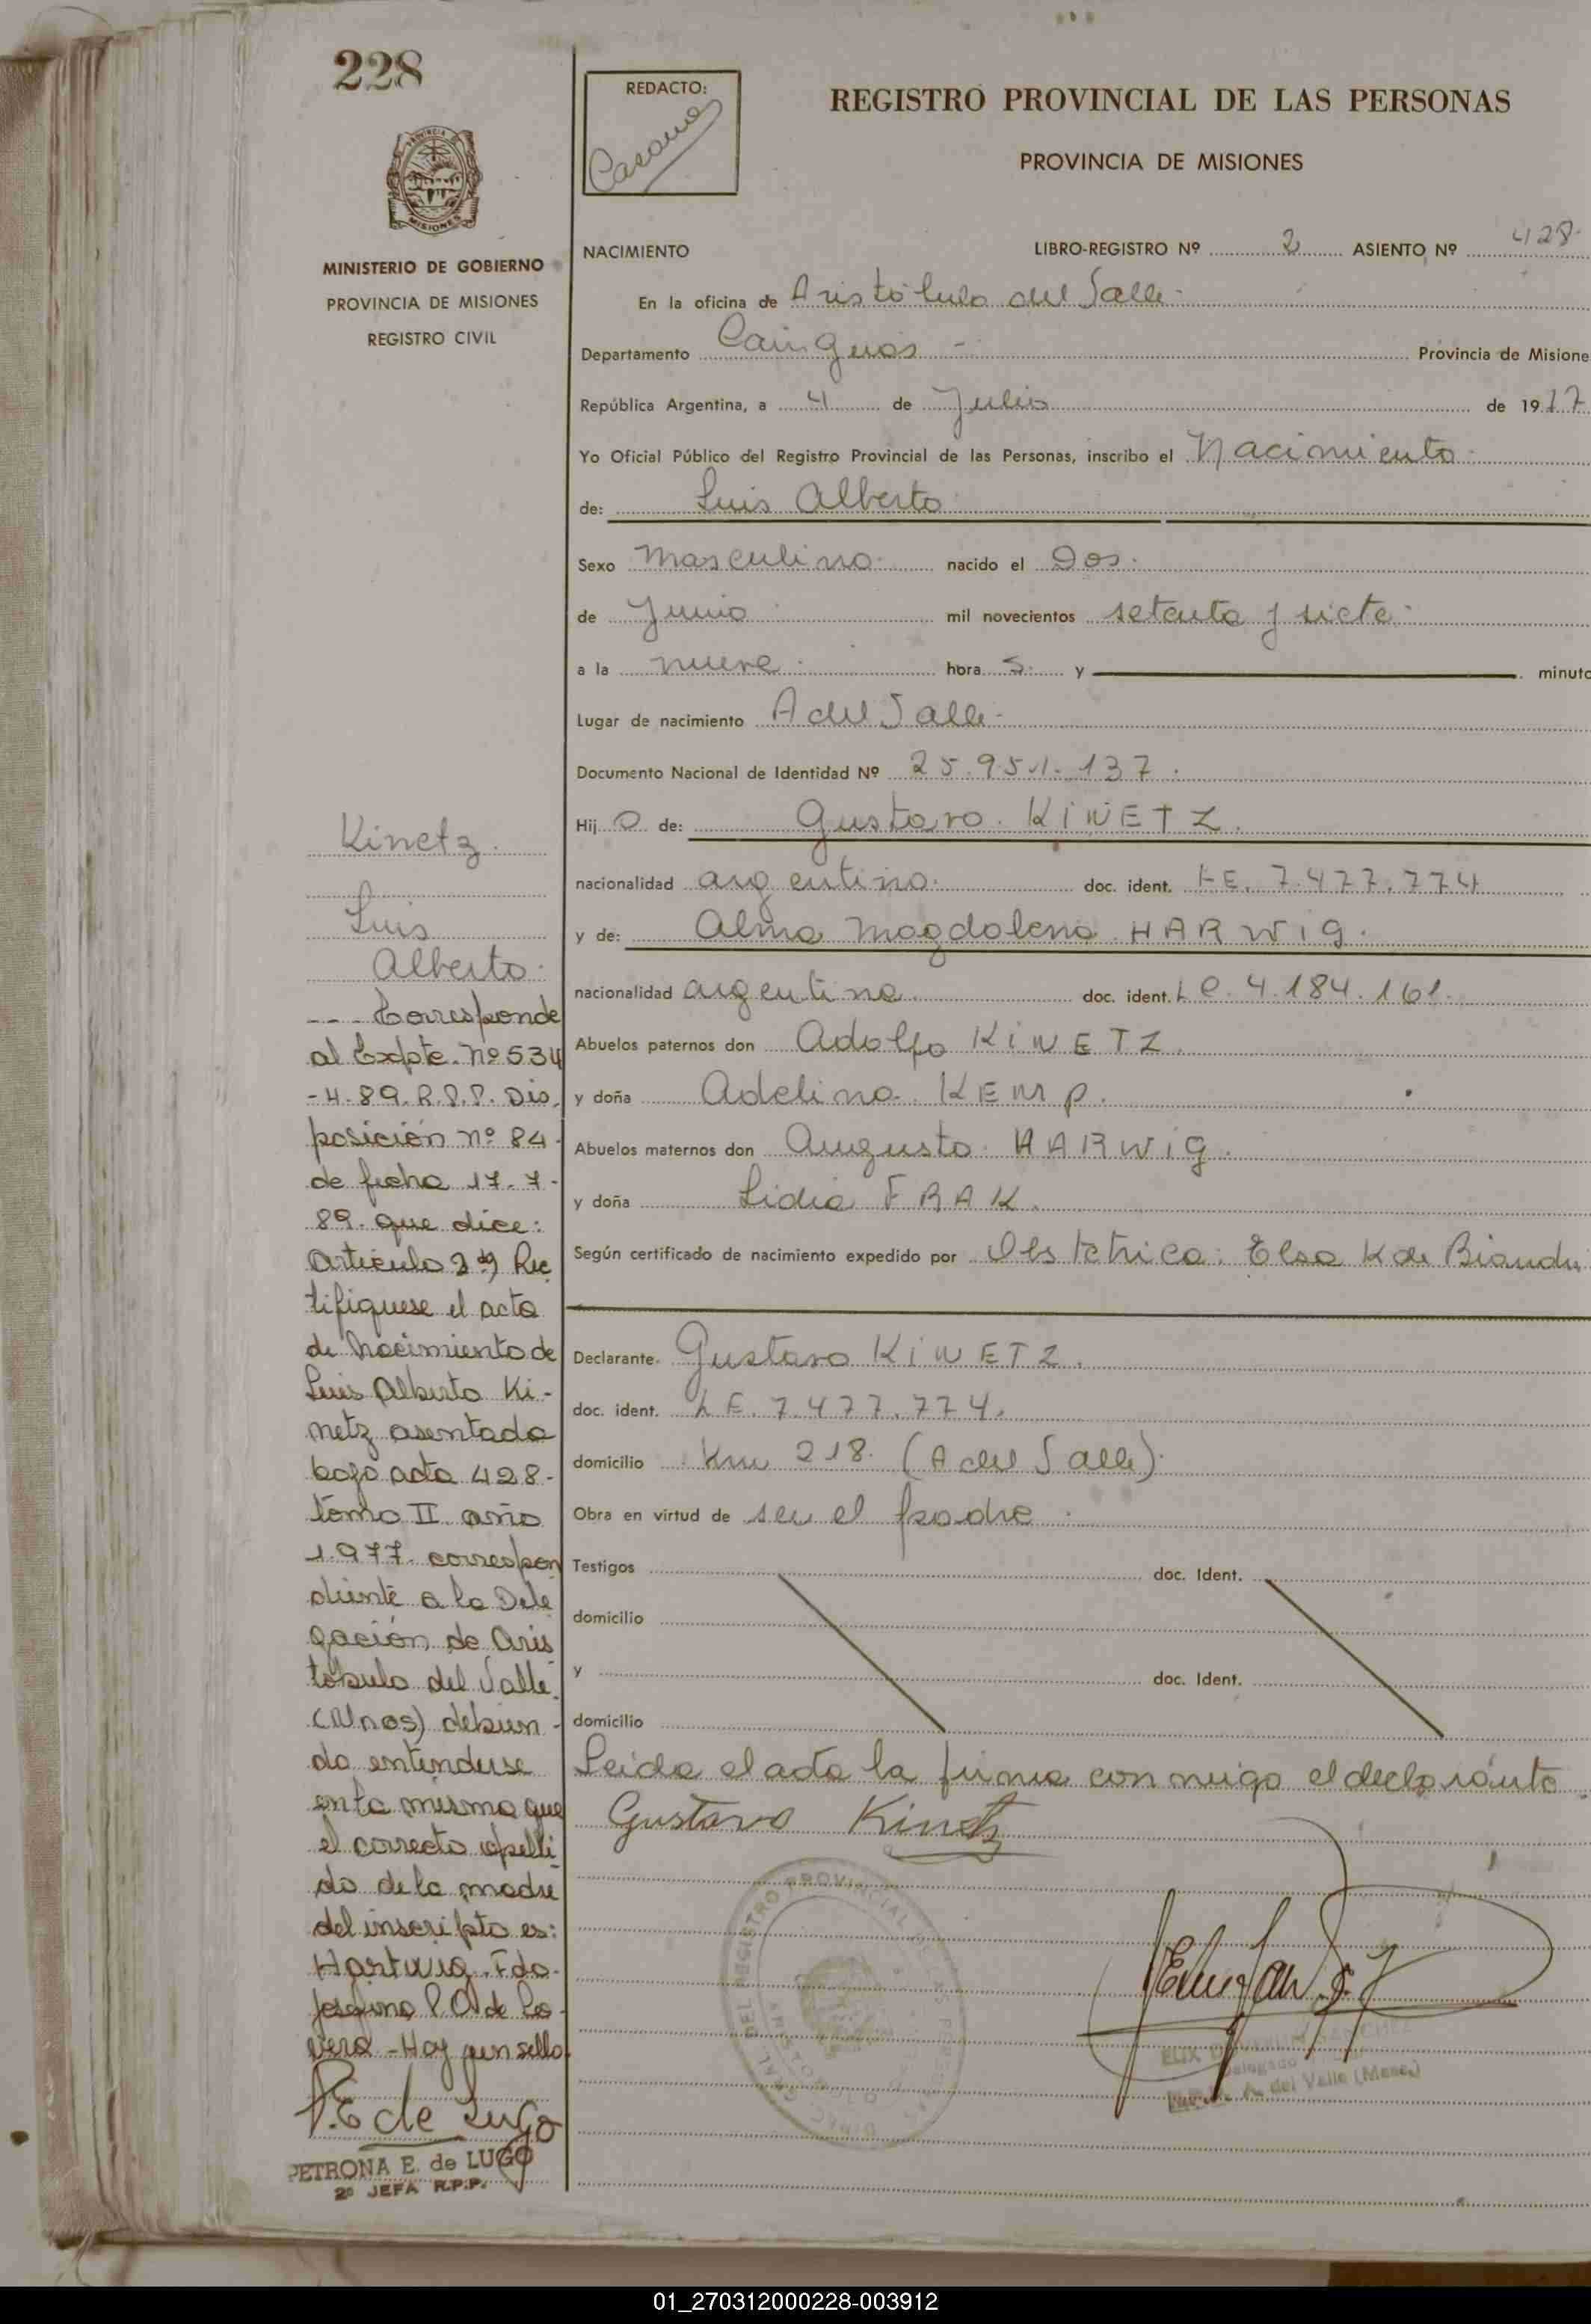 228
REDACTO:
REGISTRO PROVINCIAL DE LAS PERSONAS
PROVINCIA DE MISIONES
PROVINCIA
MISIONES
MINISTERIO DE GOBIERNO
PROVINCIA DE MISIONES
REGISTRO CIVIL
NACIMIENTO LIBRO-REGISTRO Nº 2 ASIENTO Nº 428
En la oficina de Aristóbulo del Valle
Departamento Cainguás - Provincia de Misione
República Argentina, a 4 de Julio de 1917
Yo Oficial Público del Registro Provincial de las Personas, inscribo el Nacimiento
de: Luis Alberto
Sexo Masculino nacido el Dos
de Junio mil novecientos setenta y siete
a la nueve hora s y minuto
Lugar de nacimiento A del Valle
Documento Nacional de Identidad Nº 25.951.137
Hij o de: Gustavo KINETZ
nacionalidad argentino doc. ident. LE. 7.477.774
y de: Alma Magdalena HARWIG
nacionalidad argentina doc. ident. LC. 4.184.161
Abuelos paternos don Adolfo KINETZ
y doña Adelina KEMP
Abuelos maternos don Augusto HARWIG
y doña Lidia FRAK
Según certificado de nacimiento expedido por Obstetrica: Elsa K de
Declarante Gustavo KINETZ
doc. ident. LE. 7.477.774.
domicilio Km 218 (A del Valle)
Obra en virtud de ser el padre
Testigos doc. Ident.
domicilio
y doc. Ident.
domicilio
Leida el acta la firma con migo el declarante
Gustavo Kinetz
Kinetz
Luis
Alberto
--- Corresponde
al Expte. Nº 534
-4-89. R.P.P. Dis
posición nº 84
de fecha 17-7-
89. que dice:
Articulo 1º) Rec
tifiquese el acta
de Nacimiento de
Luis Alberto Ki-
netz asentada
bajo acta 428-
tomo II año
1977. correspon
diente a la Dele
gación de Aris
tóbulo del Valle
(Mnes) debien-
do entenderse
en la misma que
el correcto apelli
do de la madre
del inscripto es:
Hartwig. Fdo.
Josefina P.O. de
- Hay un sello
P.E de Lugo
PETRONA E. de LUGO
2ª JEFA R.P.P.
DEL REGISTRO PROVINCIAL DE LAS PERSONAS
SANCHEZ
Delegado
A. del Valle (Mnes.)
01_270312000228-003912